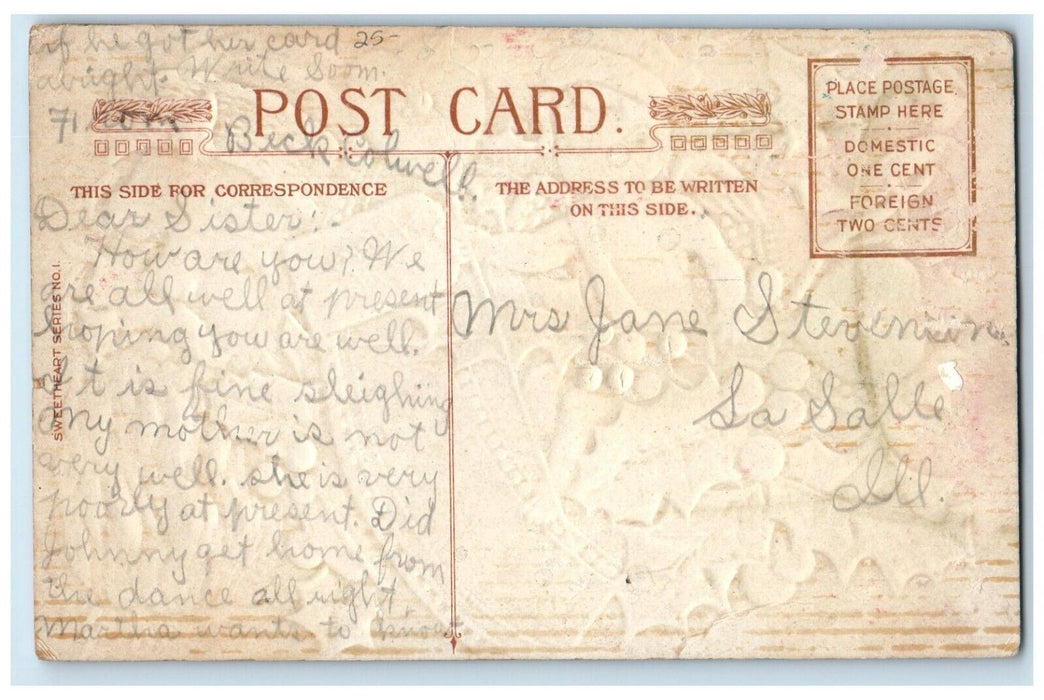 if he got her card 25-
alright. Write Soon.
POST CARD.
From
Beck Colwell.
THIS SIDE FOR CORRESPONDENCE
THE ADDRESS TO BE WRITTEN
ON THIS SIDE.
PLACE POSTAGE
STAMP HERE
DOMESTIC
ONE CENT
FOREIGN
TWO CENTS
SWEETHEART SERIES NO.1.
Dear Sister:-
How are you? We
are all well at present
hoping you are well.
It is fine sleighing
My mother is not
very well. she is very
poorly at present. Did
Johnny get home from
the dance all right
Martha wants to know
Mrs Jane
La Salle
Ill.